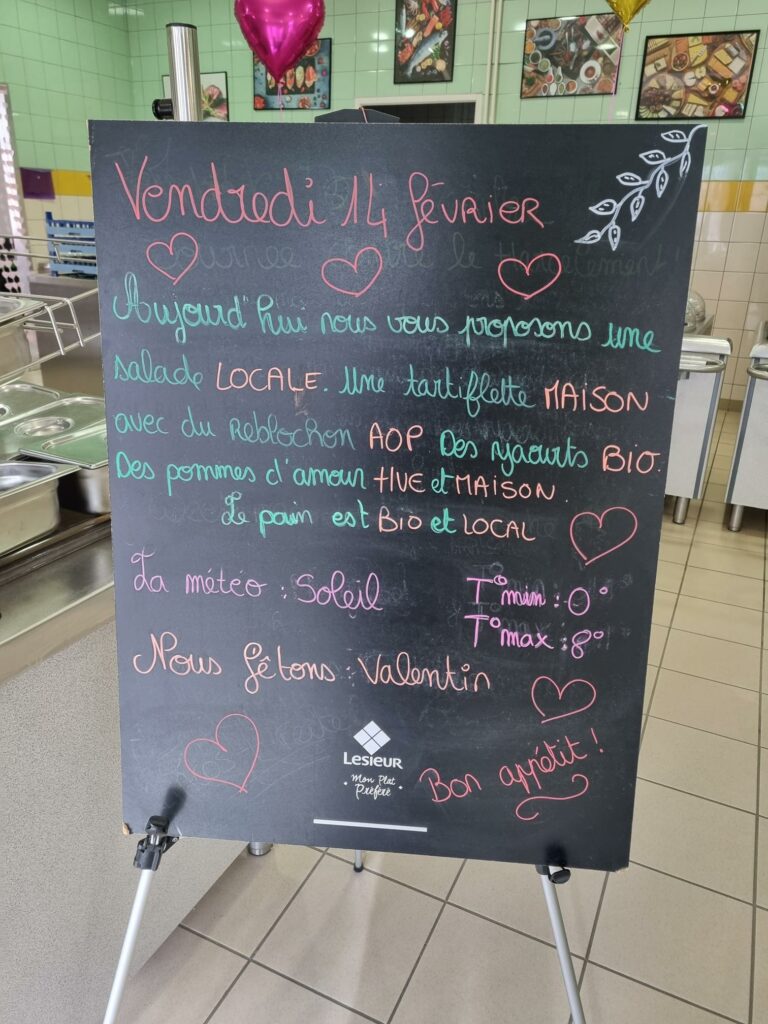 Vendredi 14 février
Journée contre le Harcèlement !
Aujourd'hui nous vous proposons une
salade LOCALE. Une tartiflette MAISON
avec du Reblochon AOP Des yaourts BIO.
Des pommes d'amour HVE et MAISON.
Le pain est BIO et LOCAL
La météo : Soleil
T° min : 0°
T° max : 8°
Nous fêtons : Valentin
LESIEUR
Mon Plat
Préféré
Bon appétit !